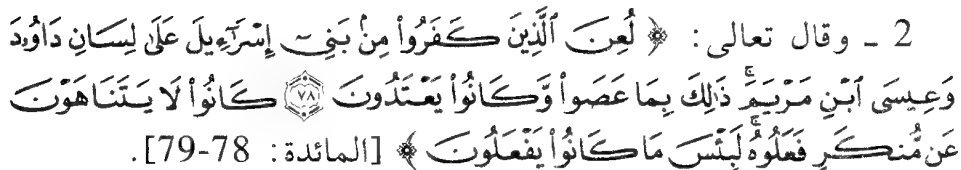 2 ـ وقال تعالى: ﴿ لُعِنَ ٱلَّذِينَ كَفَرُوا۟ مِنۢ بَنِىٓ إِسْرَٰٓءِيلَ عَلَىٰ لِسَانِ دَاوُۥدَ
وَعِيسَى ٱبْنِ مَرْيَمَ ۚ ذَٰلِكَ بِمَا عَصَوا۟ وَّكَانُوا۟ يَعْتَدُونَ ٧٨ كَانُوا۟ لَا يَتَنَاهَوْنَ
عَن مُّنكَرٍ فَعَلُوهُ ۚ لَبِئْسَ مَا كَانُوا۟ يَفْعَلُونَ ﴾ [المائدة: 78-79].